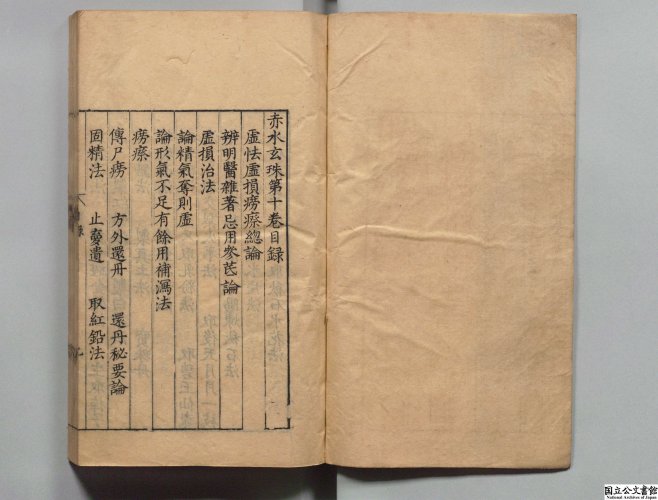 赤水玄珠第十卷目録
虚怯虚損癆瘵總論
辨明醫雜著忌用參芪論
虚損治法
論精氣奪則虚
論形氣不足有餘用補瀉法
癆瘵
傳尸癆 方外還丹 還丹秘要論
固精法 止夢遺 取紅鉛法
国立公文書館
National Archives of Japan